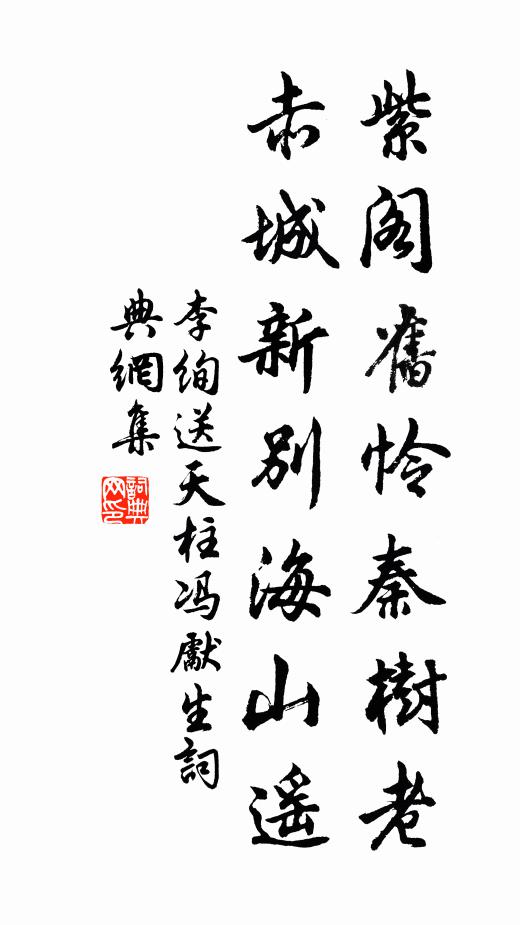 紫阁舊怜秦樹老
赤城新别海山遥
李绚送天柱冯獻生詞
典網集
詞典网印